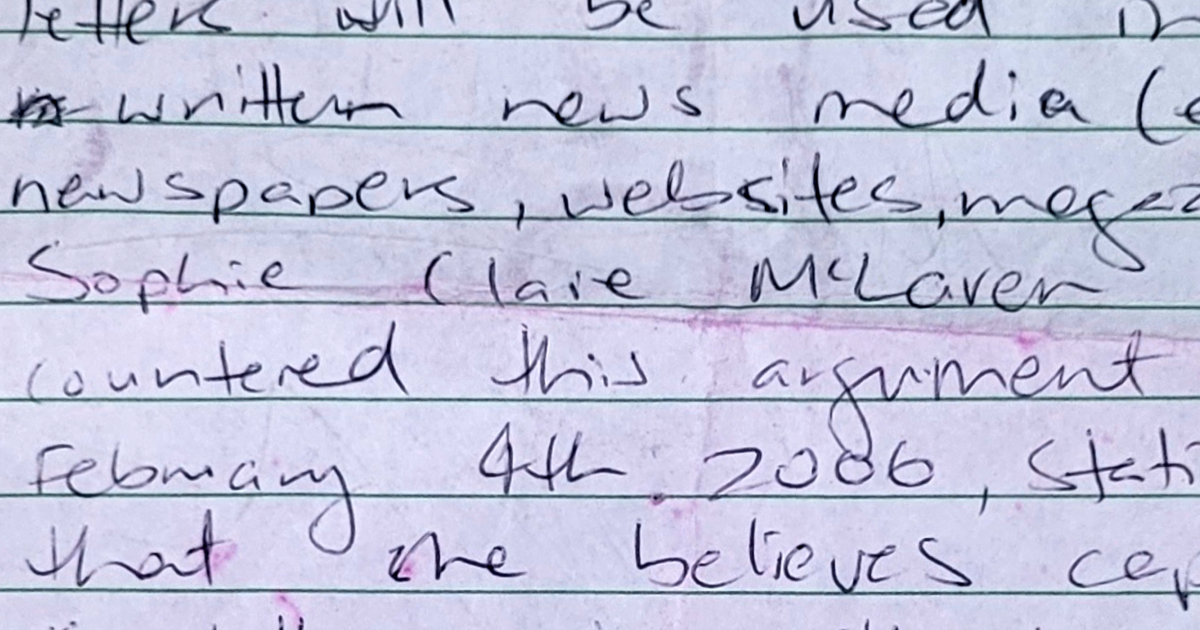 letters will be used in
written news media (e
newspapers, websites, megaz
Sophie Claire McLaren
countered this argument
February 4th 2006, stati
that she believes cap